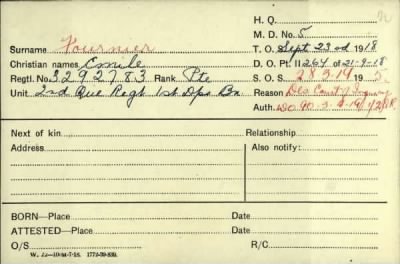 H. Q.
M. D. No. 5
Surname Fournier T. O. Sept 23rd 1918
Christian names Emile D. O. Pt. II 264 of 21-9-18
Regtl. No. 3292783 Rank Pte S. O. S. 28.3.19 19
Unit 2nd Que Regt 1st Dps Bn. Reason Des Court of Inquiry
Auth. DO 90
Next of kin Relationship
Address Also notify:
BORN—Place Date
ATTESTED—Place Date
O/S R/C
W. 22—10M-7-18. 1772-39-839.